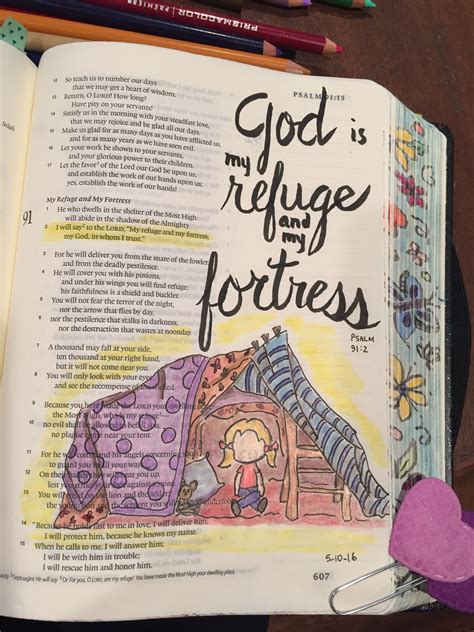 PRISMACOLOR
PREMIER
PSALM 91:15
12 So teach us to number our days
that we may get a heart of wisdom.
13 Return, O LORD! How long?
Have pity on your servants!
14 Satisfy us in the morning with your steadfast love,
that we may rejoice and be glad all our days.
15 Make us glad for as many days as you have afflicted us,
and for as many years as we have seen evil.
16 Let your work be shown to your servants,
and your glorious power to their children.
17 Let the favor of the Lord our God be upon us,
and establish the work of our hands upon us;
yes, establish the work of our hands!
My Refuge and My Fortress
91
1 He who dwells in the shelter of the Most High
will abide in the shadow of the Almighty.
2 I will say to the LORD, "My refuge and my fortress,
my God, in whom I trust."
3 For he will deliver you from the snare of the fowler
and from the deadly pestilence.
4 He will cover you with his pinions,
and under his wings you will find refuge;
his faithfulness is a shield and buckler.
5 You will not fear the terror of the night,
nor the arrow that flies by day,
6 nor the pestilence that stalks in darkness,
nor the destruction that wastes at noonday.
7 A thousand may fall at your side,
ten thousand at your right hand,
but it will not come near you.
8 You will only look with your eyes
and see the recompense of the wicked.
9 Because you have made the LORD your dwelling place
the Most High, who is my refuge
10 no evil shall be allowed to befall you,
no plague come near your tent.
11 For he will command his angels concerning you
to guard you in all your ways.
12 On their hands they will bear you up,
lest you strike your foot against
13 You will tread on the lion and the adder
the serpent you will trample underfoot
14 Because he holds fast to me in love, I will deliver him;
I will protect him, because he knows my name.
15 When he calls to me, I will answer him;
I will be with him in trouble;
I will rescue him and honor him.
Septuagint He will say Or For you, O LORD, are my refuge! You have made the Most High your dwelling place
607
God is
my
refuge
and
my
fortress
PSALM
91:2
5-10-16